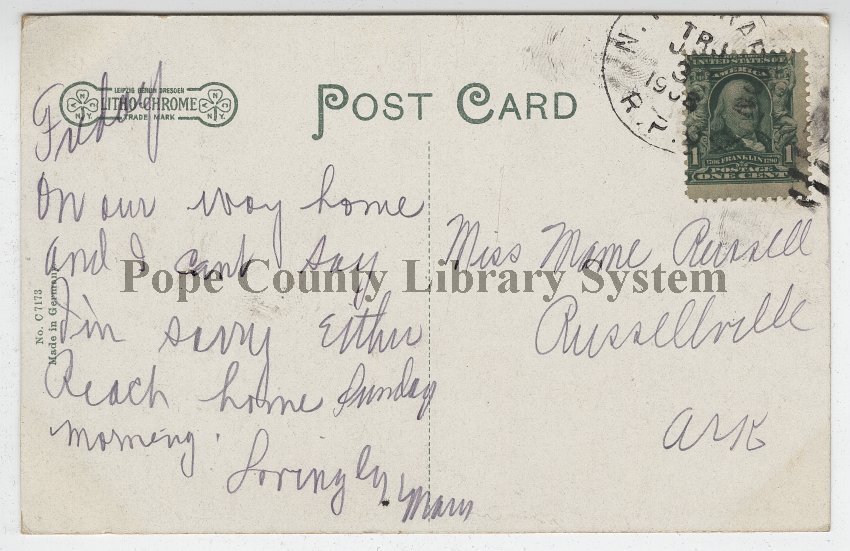 LEIPZIG BERLIN DRESDEN
LITHO-CHROME
TRADE MARK
N.Y.
POST CARD
TR.
3
R.P.
UNITED STATES OF
AMERICA
1 FRANKLIN 1
POSTAGE
ONE CENT
Friday
On our way home
and I cant say
I'm sorry Either
Reach home Sunday
morning.
Lovingly
Miss Mame Russell
Russellville
Ark
Pope County Library System
No. C7173
Made in Germany